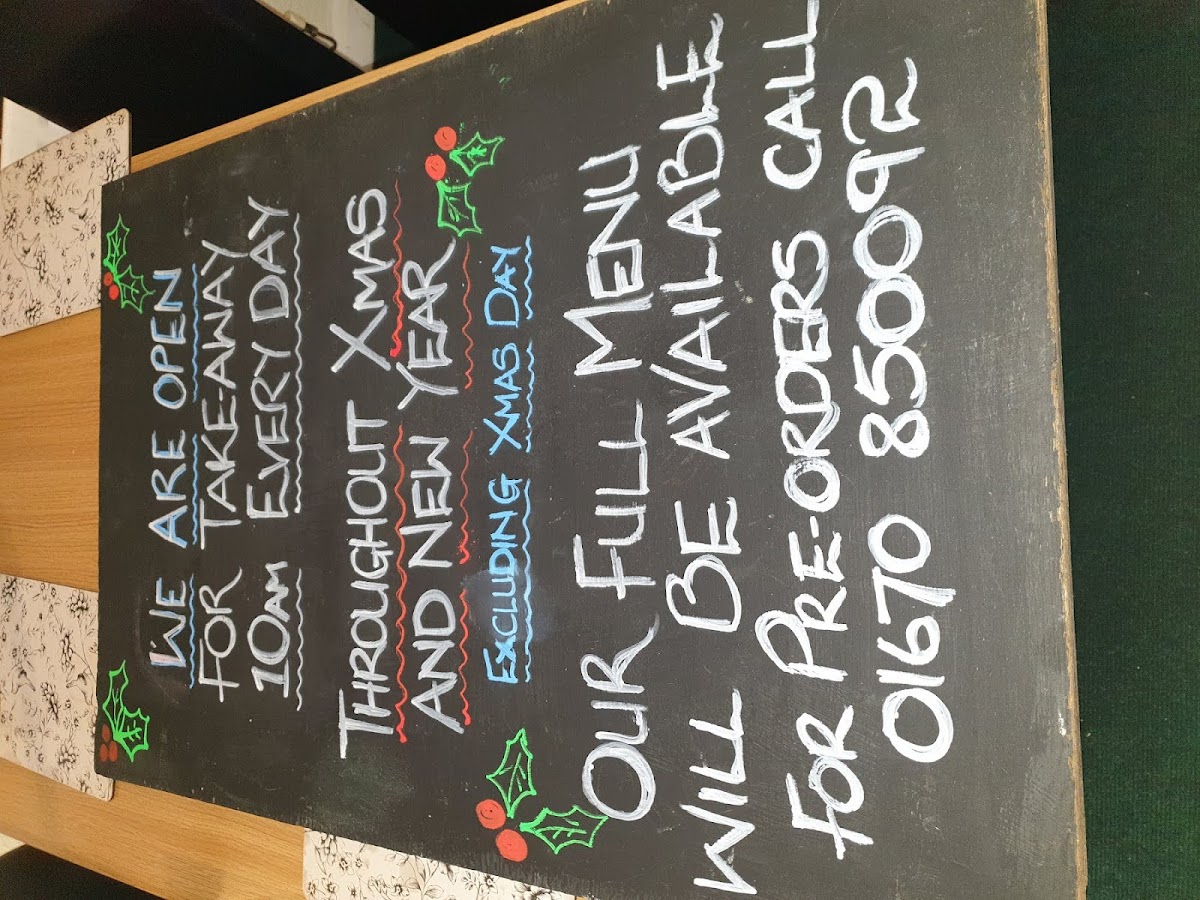 WE ARE OPEN
FOR TAKE-AWAY
10AM EVERY DAY
THROUGHOUT XMAS
AND NEW YEAR
EXCLUDING XMAS DAY
OUR FULL MENU
WILL BE AVAILABLE
FOR PRE-ORDERS CALL
01670 850092